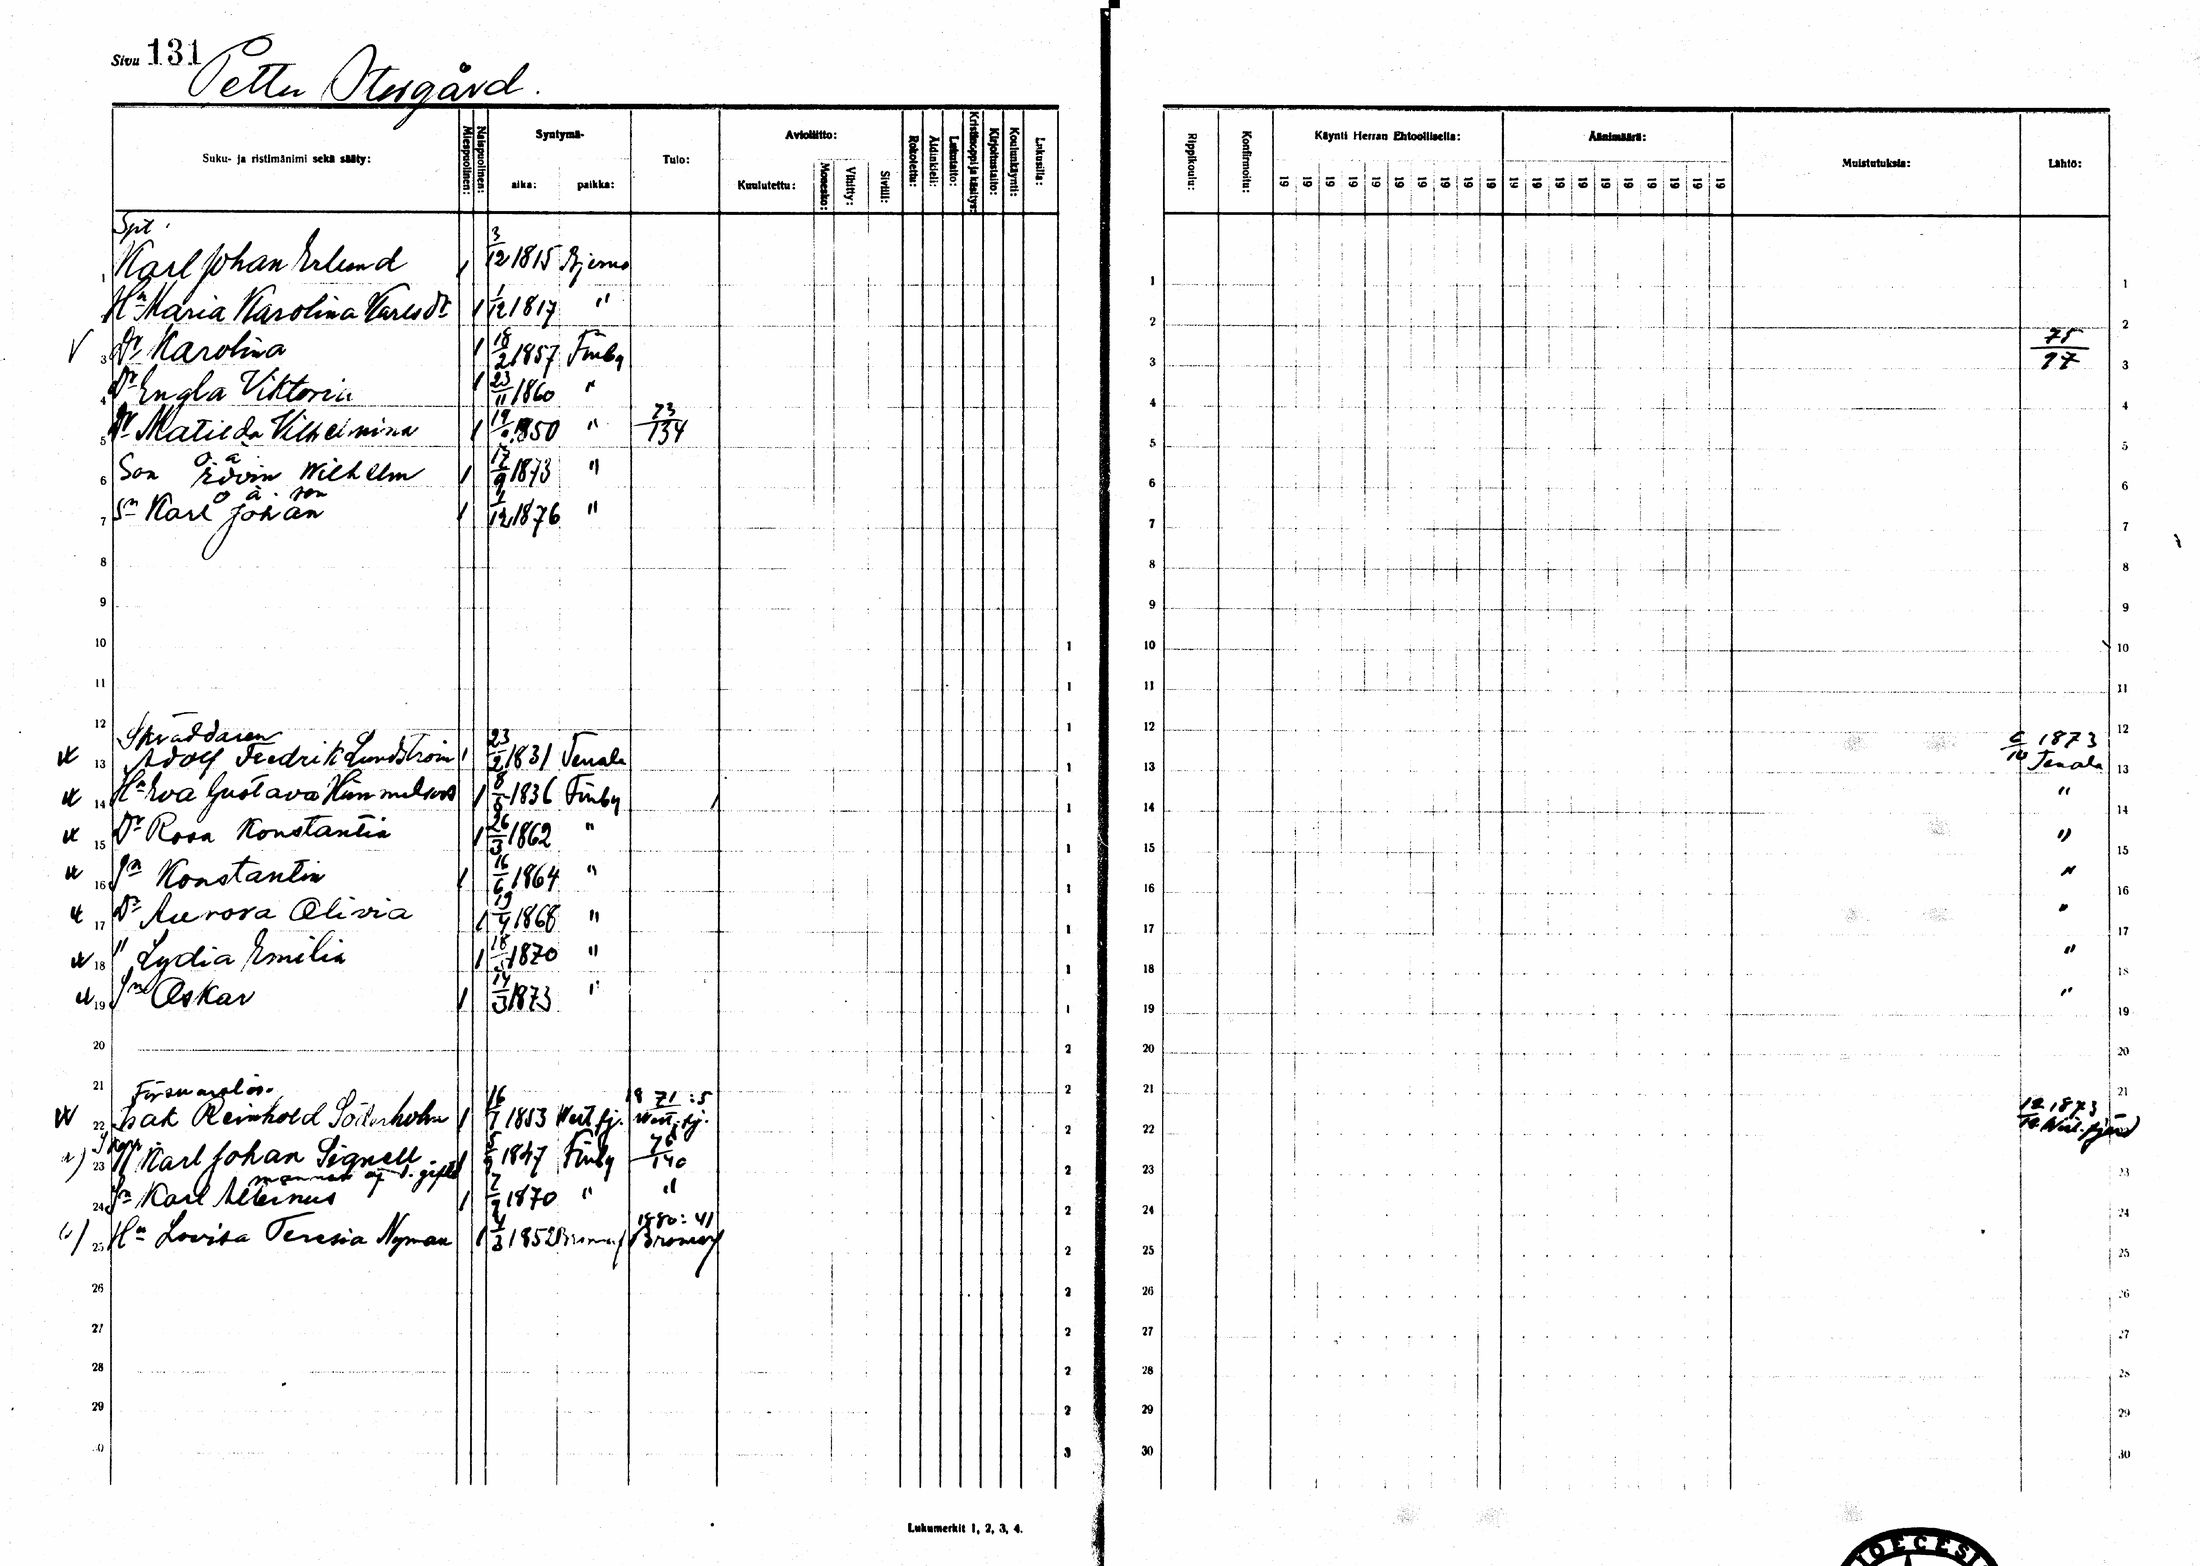 Sivu 131 Pettu Stusgård.
Suku- ja ristimänimi sekä sääty: Miespuolinen: Naispuolinen: Syntymä- aika: paikka: Tulo: Avioliitto: Kuulutettu: Monesko: Vihitty: Siviili: Rokotettu: Äidinkieli: Lukutaito: Kristinoppi ja käsitys: Kirjoitustaito: Koulunkäynti: Lukusilla:
Rippikoulu: Konfirmoitu: Käynti Herran Ehtoollisella: Äänimäärä: Muistutuksia: Lähtö:
19 19 19 19 19 19 19 19 19 19 19 19 19 19 19 19 19 19 19 19
Spt.
1 Karl Johan Erlund 1 3/12 1815 Bjerno 1 1
Hn Maria Karolina Karlsdr 1 1/12 1817 " 2 2
V 3 Dr Karolina 1 18/2 1857 Finby 3 75/97 3
4 Dr Engla Viktoria 1 23/11 1860 " 4 4
5 Dr Matilda Vilhelmina 1 1850 " 73/134 5 5
6 Son o. ä. Edvin Wilhelm 1 17/9 1873 " 6 6
7 Sn Karl Johan o ä. son 1 1/12 1876 " 7 7
8 8 8
9 9 9
10 1 10 10
11 1 11 11
12 Skräddaren 1 12 12
13 Adolf Fredrik Lundström 1 23/2 1831 Tenala 1 13 6/10 1873 Tenala 13
14 Hn Eva Gustava 1 8/5 1836 Finby 1 14 " 14
15 Dr Rosa Konstantia 1 26/3 1862 " 1 15 " 15
16 Sn Konstantin 1 16/6 1864 " 1 16 " 16
17 Dr Aurora Olivia 1 19/4 1868 " 1 17 " 17
18 " Lydia Emilia 1 18/5 1870 " 1 18 " 18
19 Sn Oskar 1 14/3 1873 " 1 19 " 19
20 2 20 20
21 Försvarslös. 2 21 21
22 Isak Reinhold Söderholm 1 16/7 1853 Westfj. 1871:5 Westfj. 2 22 12/12 1873 West.fjärd 22
23 Karl Johan Signell 1 5/9 1847 Finby 76/140 2 23 23
24 Sn Karl Albinus 1 7/9 1870 " " 2 24 24
25 Hn Lovisa Teresia Nyman 1 4/3 1852 Bromarf 1880:41 Bromarf 2 25 25
26 2 26 26
27 2 27 27
28 2 28 28
29 2 29 29
3 30 30
Lukumerkit 1, 2, 3, 4.